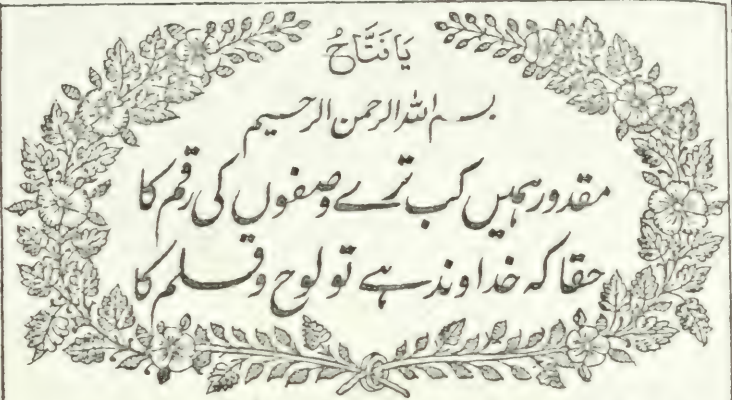 يَا فَتَّاحُ
بسم الله الرحمن الرحيم
مقدور ہمیں کب ترے وصفوں کی رقم کا
حقا کہ خداوند ہے تو لوح و قلم کا